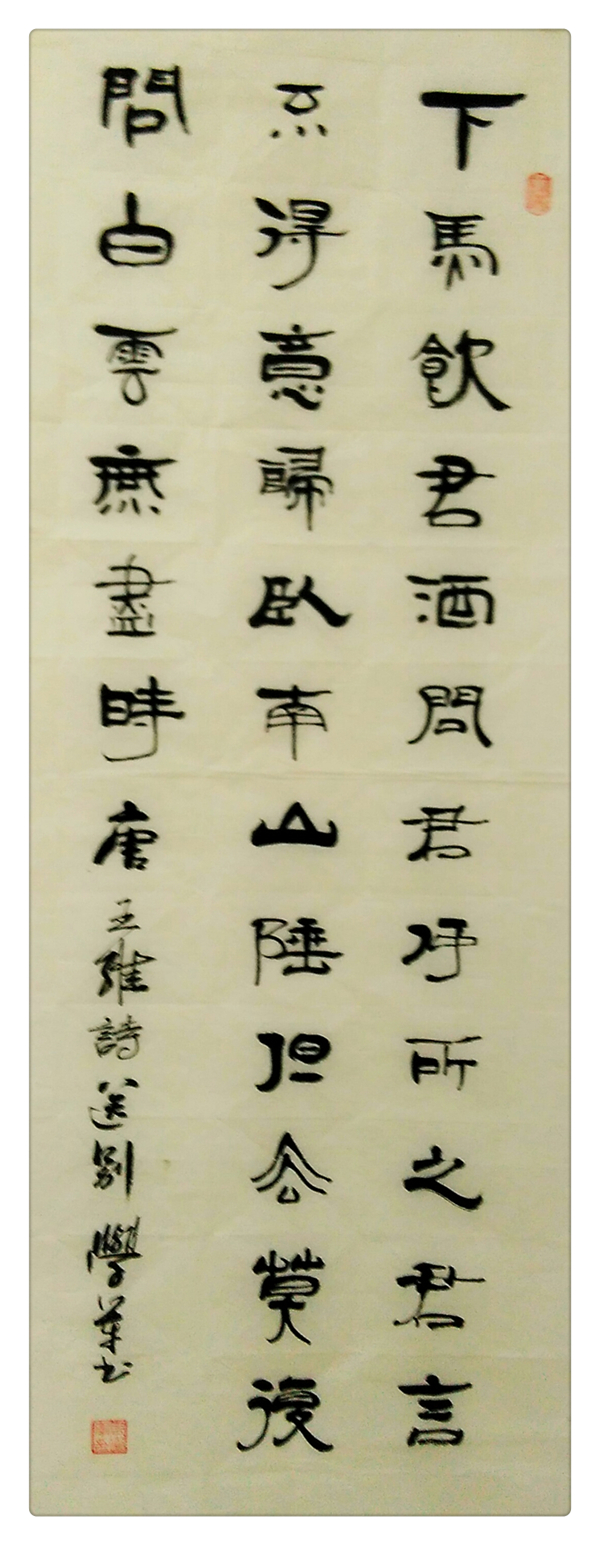 下馬飲君酒問君何所之君言
不得意歸臥南山陲但去莫復
問白雲無盡時唐王維詩送別學书